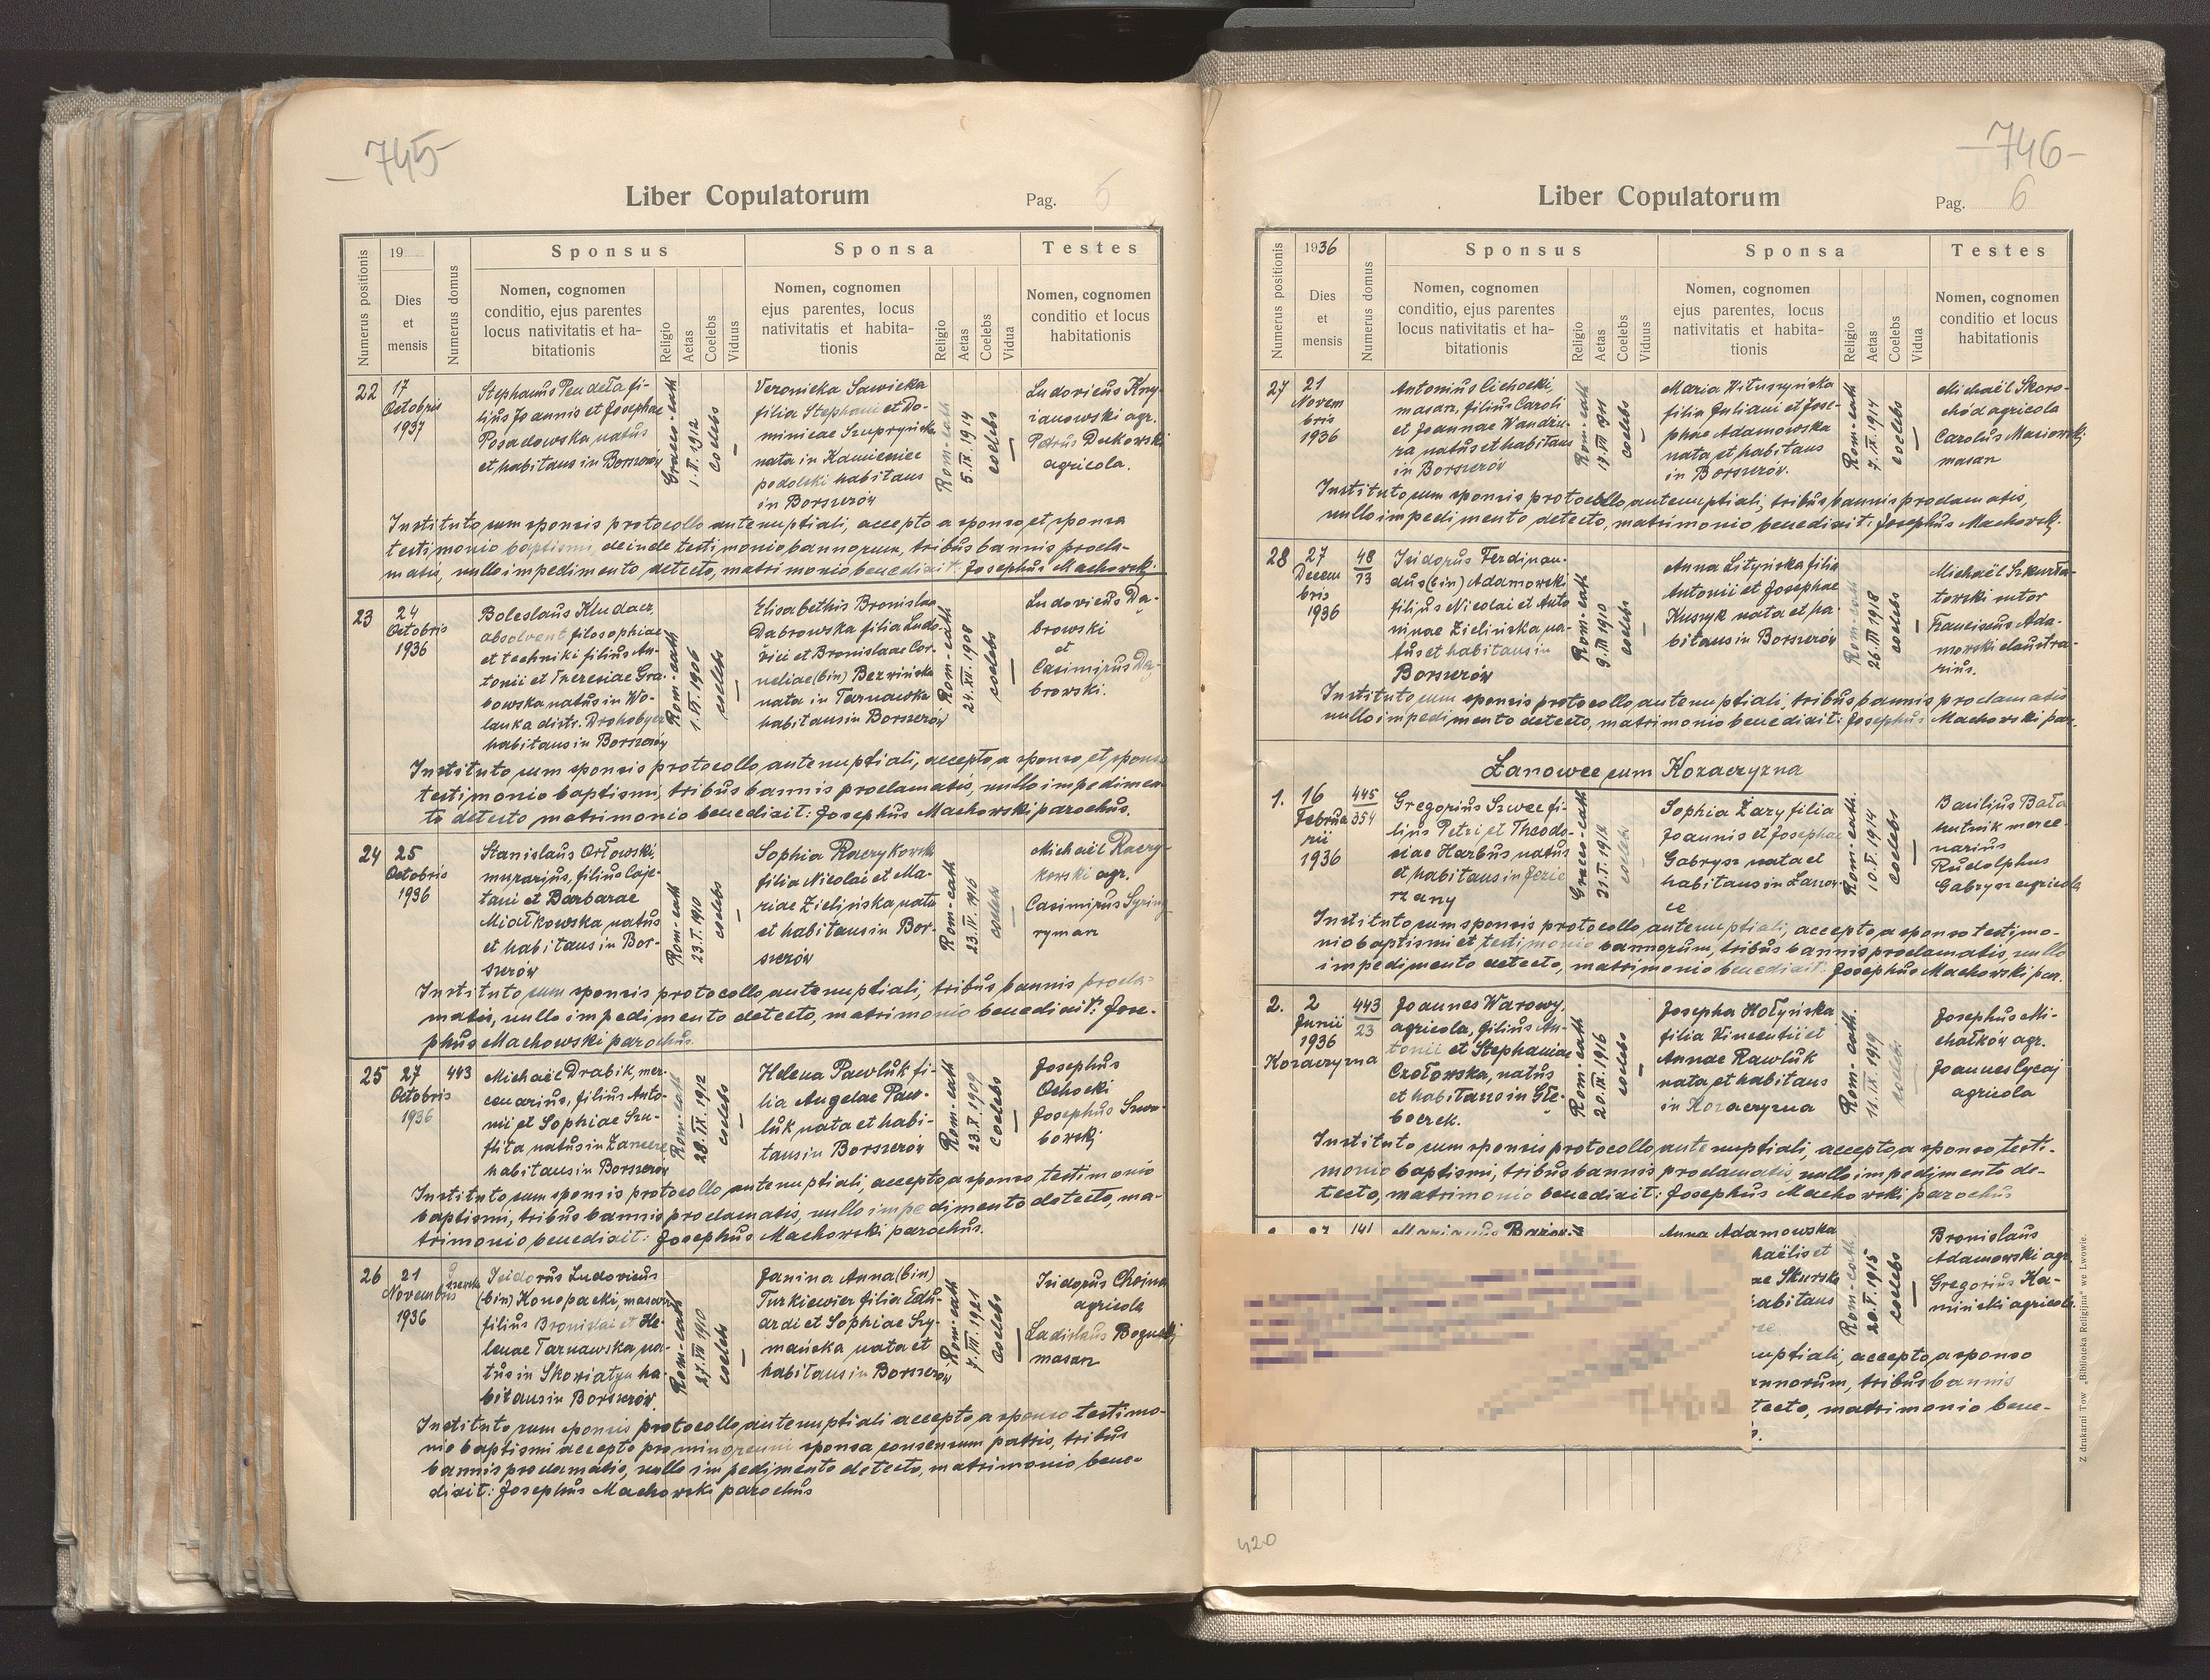 —745—
Liber Copulatorum
Pag. 5
Numerus positionis
19
Dies
et
mensis
Numerus domus
Sponsus
Nomen, cognomen
conditio, ejus parentes
locus nativitatis et ha-
bitationis
Religio
Aetas
Coelebs
Viduus
Sponsa
Nomen, cognomen
ejus parentes, locus
nativitatis et habita-
tionis
Religio
Aetas
Coelebs
Vidua
Testes
Nomen, cognomen
conditio et locus
habitationis
22
17
Octobris
1937
Stephanus Pendeta fi-
lius Joannis et Josephae
Posadowska natus
et habitans in Borszczów
Graeco-cath
coelebs
Veronicka Sawicka
filia Stephani et Do-
minicae
nata in Kamieniec
podolski habitans
in Borszczów
Rom-cath
5.IX.1914
coelebs
Ludovicus Kny-
ianowski agr.
Petrus Dukowski
agricola.
Instituto cum sponsis protocollo antenuptiali, accepto a sponso et sponsa
testimonio baptismi, deinde testimonio bannorum, tribus bannis procla-
matis, nullo impedimento detecto, matrimonio benedixit: Josephus Machowski
23
24
Octobris
1936
Boleslaus Kludacz
absolvent filosophiae
et techniki filius An-
tonii et Theresiae Gra-
bowska natus in Wo-
lanka distr. Drohobycz
habitans in Borszczów
Rom-cath
1.VI.1906
coelebs
Elisabethis Bronislaa
Dabrowska filia Ludo-
vici et Bronislaae Cor-
neliae (bin) Bezwińska
nata in Tarnawka
habitans in Borszczów
Rom-cath
24.XII.1908
coelebs
Ludovicus Da-
browski
et
Casimirus Da-
browski.
Instituto cum sponsis protocollo antenuptiali, accepto a sponso et sponsa
testimonio baptismi, tribus bannis proclamatis, nullo impedimen-
to detecto matrimonio benedixit: Josephus Machowski parochus.
24
25
Octobris
1936
Stanislaus Orłowski,
murarius, filius Caje-
tani et Barbarae
Miałkowska natus
et habitans in Bor-
szczów
Rom-cath
23.I.1910
coelebs
Sophia Raczykowska
filia Nicolai et Ma-
riae Zielińska nata
et habitans in Bor-
szczów
Rom-cath
23.IV.1916
coelebs
Michaël Raczy-
kowski agr.
Casimirus
ryman
Instituto cum sponsis protocollo antenuptiali, tribus bannis procla-
matis, nullo impedimento detecto, matrimonio benedixit: Jose-
phus Machowski parochus.
25
27
Octobris
1936
443
Michaël Drabik, mer-
cenarius, filius Anto-
nii et Sophiae Szu-
natus in Łanowce
habitans in Borszczów
Rom-cath
28.IX.1912
coelebs
Helena Pawluk fi-
lia Angelae Paw-
luk nata et habi-
tans in Borszczów
Rom-cath
23.X.1909
coelebs
Josephus
Ochocki
Josephus
bowski
Instituto cum sponsis protocollo antenuptiali, accepto a sponso testimonio
baptismi, tribus bannis proclamatis, nullo impedimento detecto, ma-
trimonio benedixit: Josephus Machowski parochus.
26
21
Novembris
1936
Isidorus Ludovicus
(bin) Konopacki, masarz
filius Bronislai et He-
lenae Tarnawska na-
tus in Skoviatyn ha-
bitans in Borszczów.
Rom-cath
27.VII.1910
coelebs
Janina Anna (bin)
Turkiewicz filia Edu-
ardi et Sophiae Szy-
mańska nata et
habitans in Borszczów
Rom-cath
7.VII.1921
coelebs
Isidorus Choina
agricola
Ladislaus Bogucki
masarz
Instituto cum sponsis protocollo antenuptiali accepto a sponso testimo-
nio baptismi accepto pro minorenni sponsa consensum patris, tribus
bannis proclamatis, nullo impedimento detecto, matrimonio bene-
dixit: Josephus Machowski parochus
—746—
Liber Copulatorum
Pag. 6
Numerus positionis
1936
Dies
et
mensis
Numerus domus
Sponsus
Nomen, cognomen
conditio, ejus parentes
locus nativitatis et ha-
bitationis
Religio
Aetas
Coelebs
Viduus
Sponsa
Nomen, cognomen
ejus parentes, locus
nativitatis et habita-
tionis
Religio
Aetas
Coelebs
Vidua
Testes
Nomen, cognomen
conditio et locus
habitationis
27
21
Novem
bris
1936
Antonius Cichocki,
masarz, filius Caroli
et Joannae Wandziu-
ra natus et habitans
in Borszczów
Rom-cath
coelebs
Maria Wituszyńska
filia Juliani et Jose-
phae Adamowska
nata et habitans
in Borszczów.
Rom-cath
7.IX.1914
coelebs
Michaël Skoro-
chód agricola
Carolus Masiowski
masarz
Instituto cum sponsis protocollo antenuptiali, tribus bannis proclamatis,
nullo impedimento detecto, matrimonio benedixit: Josephus Machowski.
28
27
Decem
bris
1936
48
73
Isidorus Ferdinan-
dus (bin) Adamowski
filius Nicolai et Anto
ninae Zielińska na-
tus et habitans in
Borszczów
Rom-cath
9.III.1910
coelebs
Anna Lityńska filia
Antonii et Josephae
Kuszyk nata et ha-
bitans in Borszczów
Rom-cath
26.III.1918
coelebs
Michaël Szkurła-
towski sutor
Franciscus Ada-
mowski claustra-
rius.
Instituto cum sponsis protocollo antenuptiali, tribus bannis proclamatis
nullo impedimento detecto, matrimonio benedixit: Josephus Machowski par.
Łanowce cum Kozaczyzna
1.
16
Februa
rii
1936
445
354
Gregorius Szwec fi-
lius Petri et Theodo-
siae Harbus natus
et habitans in Jezie
rzany
Graeco-cath
21.I.1912
coelebs
Sophia Zary filia
Joannis et Josephae
Gabrysz nata et
habitans in Łanow-
ce
Rom-cath.
10.V.1914
coelebs
Basilius Bała
hutnik merce-
narius
Rudolphus
Gabrysz agricola
Instituto cum sponsis protocollo antenuptiali, accepto a sponso testimo-
nio baptismi et testimonio bannorum, tribus bannis proclamatis, nullo
impedimento detecto, matrimonio benedixit: Josephus Machowski par.
2.
2
Junii
1936
Kozaczyzna
443
23
Joannes Warowy,
agricola, filius An-
tonii et Stephaniae
Czołowska, natus
et habitans in Głę-
boczek.
Rom-cath
20.IX.1916
coelebs
Josepha Hołyńska
filia Vincentii et
Annae Rawluk
nata et habitans
in Kozaczyzna
Rom-cath.
14.IX.1919
coelebs
Josephus Mi-
chałków agr.
Joannes Łycaj
agricola
Instituto cum sponsis protocollo antenuptiali, accepto a sponso testi-
monio baptismi, tribus bannis proclamatis, nullo impedimento de-
tecto, matrimonio benedixit: Josephus Machowski parochus
141
Marianus
Anna Adamowska
haëlis et
ae Skurska
habitans
Rom-cath
20.V.1915
coelebs
Bronislaus
Adamowski agr.
Gregorius Ka-
miński agricola
uptiali, accepto a sponso
annorum, tribus bannis
tecto, matrimonio bene-
Z drukarni Tow „Biblioteka Religijna" we Lwowie.
420